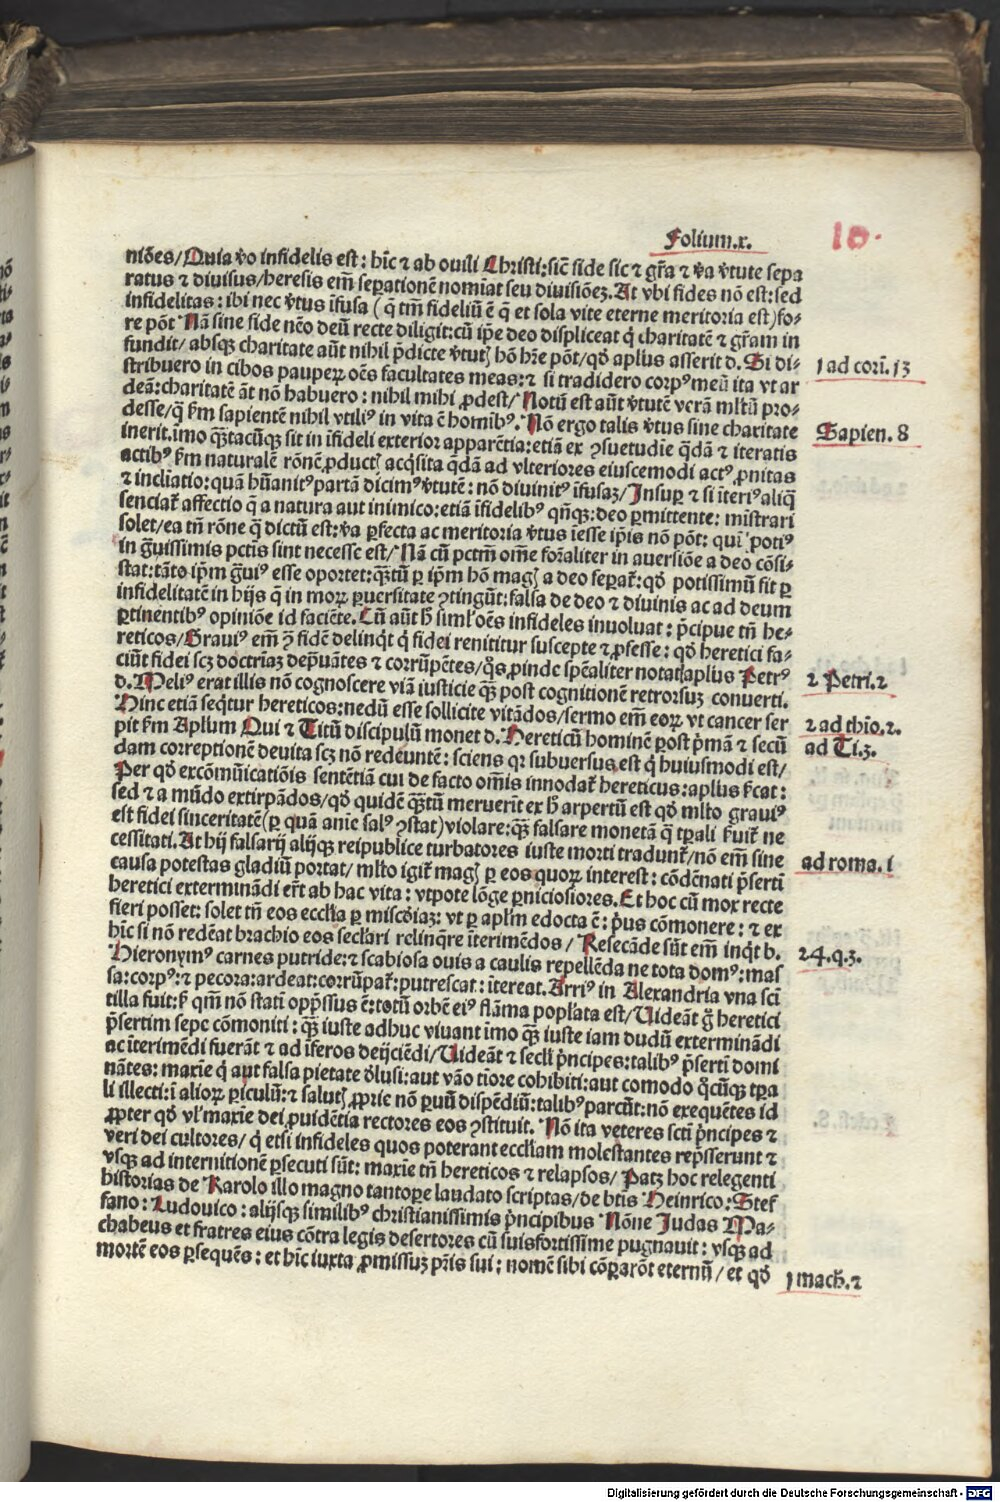 Folium.x.
10.
niões/Quia v̾o infidelis est: hīc ⁊ ab ouili Christi:sic̄ fide sic ⁊ gr̄a ⁊ v̾a v̾tute sepa
ratus ⁊ diuisus/heresis em̄ seperationē nomīat seu diuisiōez.At vbi fides nō est:sed
infidelitas: ibi nec v̾tus īfusa (q̄ tm̄ fideliū ē q̄ et sola vite eterne meritoria est)fo-
re pōt Nā sine fide nēo deū recte diligit:cū ip̄e deo displiceat q̇ charitatē ⁊ gr̄am in
fundit/ absqꝫ charitate aūt nihil p̄dicte v̾tutꝭ hō hr̄e pōt/qd̾ aplūs asserit d.Si di-
stribuero in cibos pauperꝝ oēs facultates meas:⁊ si tradidero corpꝰ meū ita vt ar
deā:charitatē āt nō habuero: nihil mihi ꝓdest/ Notū est aūt v̾tutē verā ml̾tū pro-
desse/q̄ ẜm sapientē nihil vtiliꝰ in vita ē homībꝰ. Nō ergo talis v̾tus sine charitate
inerit.īmo qꝫtacūqꝫ sit in īfideli exterior apparētia:etiā ex ꝯsuetudīe q̄dā ⁊ iteratis
actibꝰ ẜm naturalē rōnē ꝓductꝭ acq̄sita q̄dā ad vlteriores eiuscemodi actꝰ ꝓnitas
⁊ incliatio:quā hūanitꝰ partā dicimꝰ v̾tutē: nō diuinitꝰ īfusaꝫ/Insuꝑ ⁊ si īteriꝰ aliq̄
senciat᷑ affectio q̄ a natura aut inimico:etiā īfidelibꝰ qn̄qꝫ:deo ꝑmittente: mīstrari
solet/ea tn̄ rōne q̄ dictū est:v̾a ꝑfecta ac meritoria v̾tus īesse ip̄is nō pōt: qui potiꝰ
in ḡuissimis pctis sint necesse est/ Nā cū pctm̄ om̄e forāliter in auersiōe a deo cōsi-
stat:tāto ip̄m ḡuiꝰ esse oportet:qꝫtū ꝑ ip̄m hō magꝭ a deo seꝑat᷑:qd̾ potissimū fit ꝑ
infidelitatē in hijs q̄ in morꝝ ꝑuersitate ꝯtingūt:falsa de deo ⁊ diuinis ac ad deum
ꝑtinentibꝰ opiniōe id faciēte.Cū aūt h̾ siml̾ oēs infideles inuoluat: p̄cipue tn̄ he-
reticos/Grauiꝰ em̄ ꝯ̄ fidē delinq̇t q̇ fidei renititur suscepte ⁊ ꝓfesse: qd̾ heretici fa-
ciūt fidei scꝫ doctriaꝫ dep̄uātes ⁊ corrūpētes/q̇s ꝓinde spēaliter notat aplus Petrꝰ
d.Meliꝰ erat illis nō cognoscere viā iusticie qꝫ post cognitionē retrorsuꝫ conuerti.
Hinc etiā seq̇tur hereticos:nedū esse sollicite vitādos/sermo em̄ eorꝝ vt cancer ser
pit ẜm Aplum Qui ⁊ Titū discipulū monet d.Hereticū hominē post p̄mā ⁊ secū
dam correptionē deuita scꝫ nō redeuntē: sciens qꝛ subuersus est q̇ huiusmodi est/
Per qd̾ excōmūicatiōis sentētiā cui de facto om̄is innodat᷑ hereticus:aplus p̄cat:
sed ⁊ a mūdo extirpādos/qd̾ quidē qꝫtū meruerīt ex h̾ aꝑertū est qd̾ ml̾to grauiꝰ
est fidei sinceritatē(ꝑ quā anīe salꝰ ꝯstat)violare:qꝫ falsare monetā q̄ tꝑali ẜuit᷑ ne
cessitati.At hij falsarij alijqꝫ reipublice turbatores iuste morti tradunt᷑/nō em̄ sine
causa potestas gladiū portat/ ml̾to igit᷑ magꝭ ꝑ eos quorꝝ interest: cōdēnati p̄sertī
heretici exterminādi er̄t ab hac vita: vtpote lōge ꝑniciosiores.Et hoc cū mox recte
fieri posset: solet tn̄ eos eccl̄ia ꝑ misc̄diaꝫ: vt ꝑ apl̾m edocta ē: p̄us cōmonere: ⁊ ex
hīc si nō redeāt brachio eos secl̾ari relinq̄re īterimēdos/ Resecāde sūt em̄ inq̇t b.
Hieronymꝰ carnes putride:⁊ scabiosa ouis a caulis repellēda ne tota domꝰ:mas
sa:corpꝰ:⁊ pecora:ardeat:corrūpat᷑:putrescat: ītereat.Arriꝰ in Alexandria vna scī
tilla fuit:ẜ qm̄ nō statī opp̄ssus ē:totū orbē eiꝰ flāma popl̾ata est/Uideāt ḡ heretici
p̄sertim sepe cōmoniti: qꝫ iuste adhuc viuant īmo qꝫ iuste iam dudū exterminādi
ac īterimēdi fuerāt ⁊ ad īferos deijciēdi/Uideāt ⁊ secl̾ p̄ncipes:talibꝰ p̄sertī domi
nātes: maxīe q̇ aut falsa pietate d̾lusi:aut vāo tīore cohibiti:aut comodo q̊cūqꝫ tꝑa
li illecti:ī aliorꝝ ꝑiculū:⁊ salutꝭ ꝓprie nō ꝑuū dispēdiū:talibꝰ parcūt:nō exequētes id
ꝓpter qd̾ vl̾ maxīe dei ꝓuidētia rectores eos ꝯstituit. Nō ita veteres sctī p̄ncipes ⁊
veri dei cultores/ q̇ etsi infideles quos poterant eccl̄iam molestantes rep̄sserunt ⁊
vsqꝫ ad internitionē ꝑsecuti sūt: maxīe tn̄ hereticos ⁊ relapsos/ Patꝫ hoc relegenti
historias de Karolo illo magno tantoꝑe laudato scriptas/de btīs Heinrico:Stef
fano: Ludouico: alijsqꝫ similibꝰ christianissimis p̄ncipibus Nōne Judas Ma-
chabeus et fratres eius cōtra legis desertores cū suisfortissime pugnauit: vsqꝫ ad
mortē eos ꝑsequēs: et hīc iuxta ꝓmissuꝫ pr̄is sui: nomē sibi cōꝑarōt eternū/ et qd̾
1 ad cori. 13
Sapien. 8
2 Petri.2
2 ad thio.2.
ad Ti.3.
ad roma.1
24.q.3.
1 mach̄.2
Digitalisierung gefördert durch die Deutsche Forschungsgemeinschaft - DFG